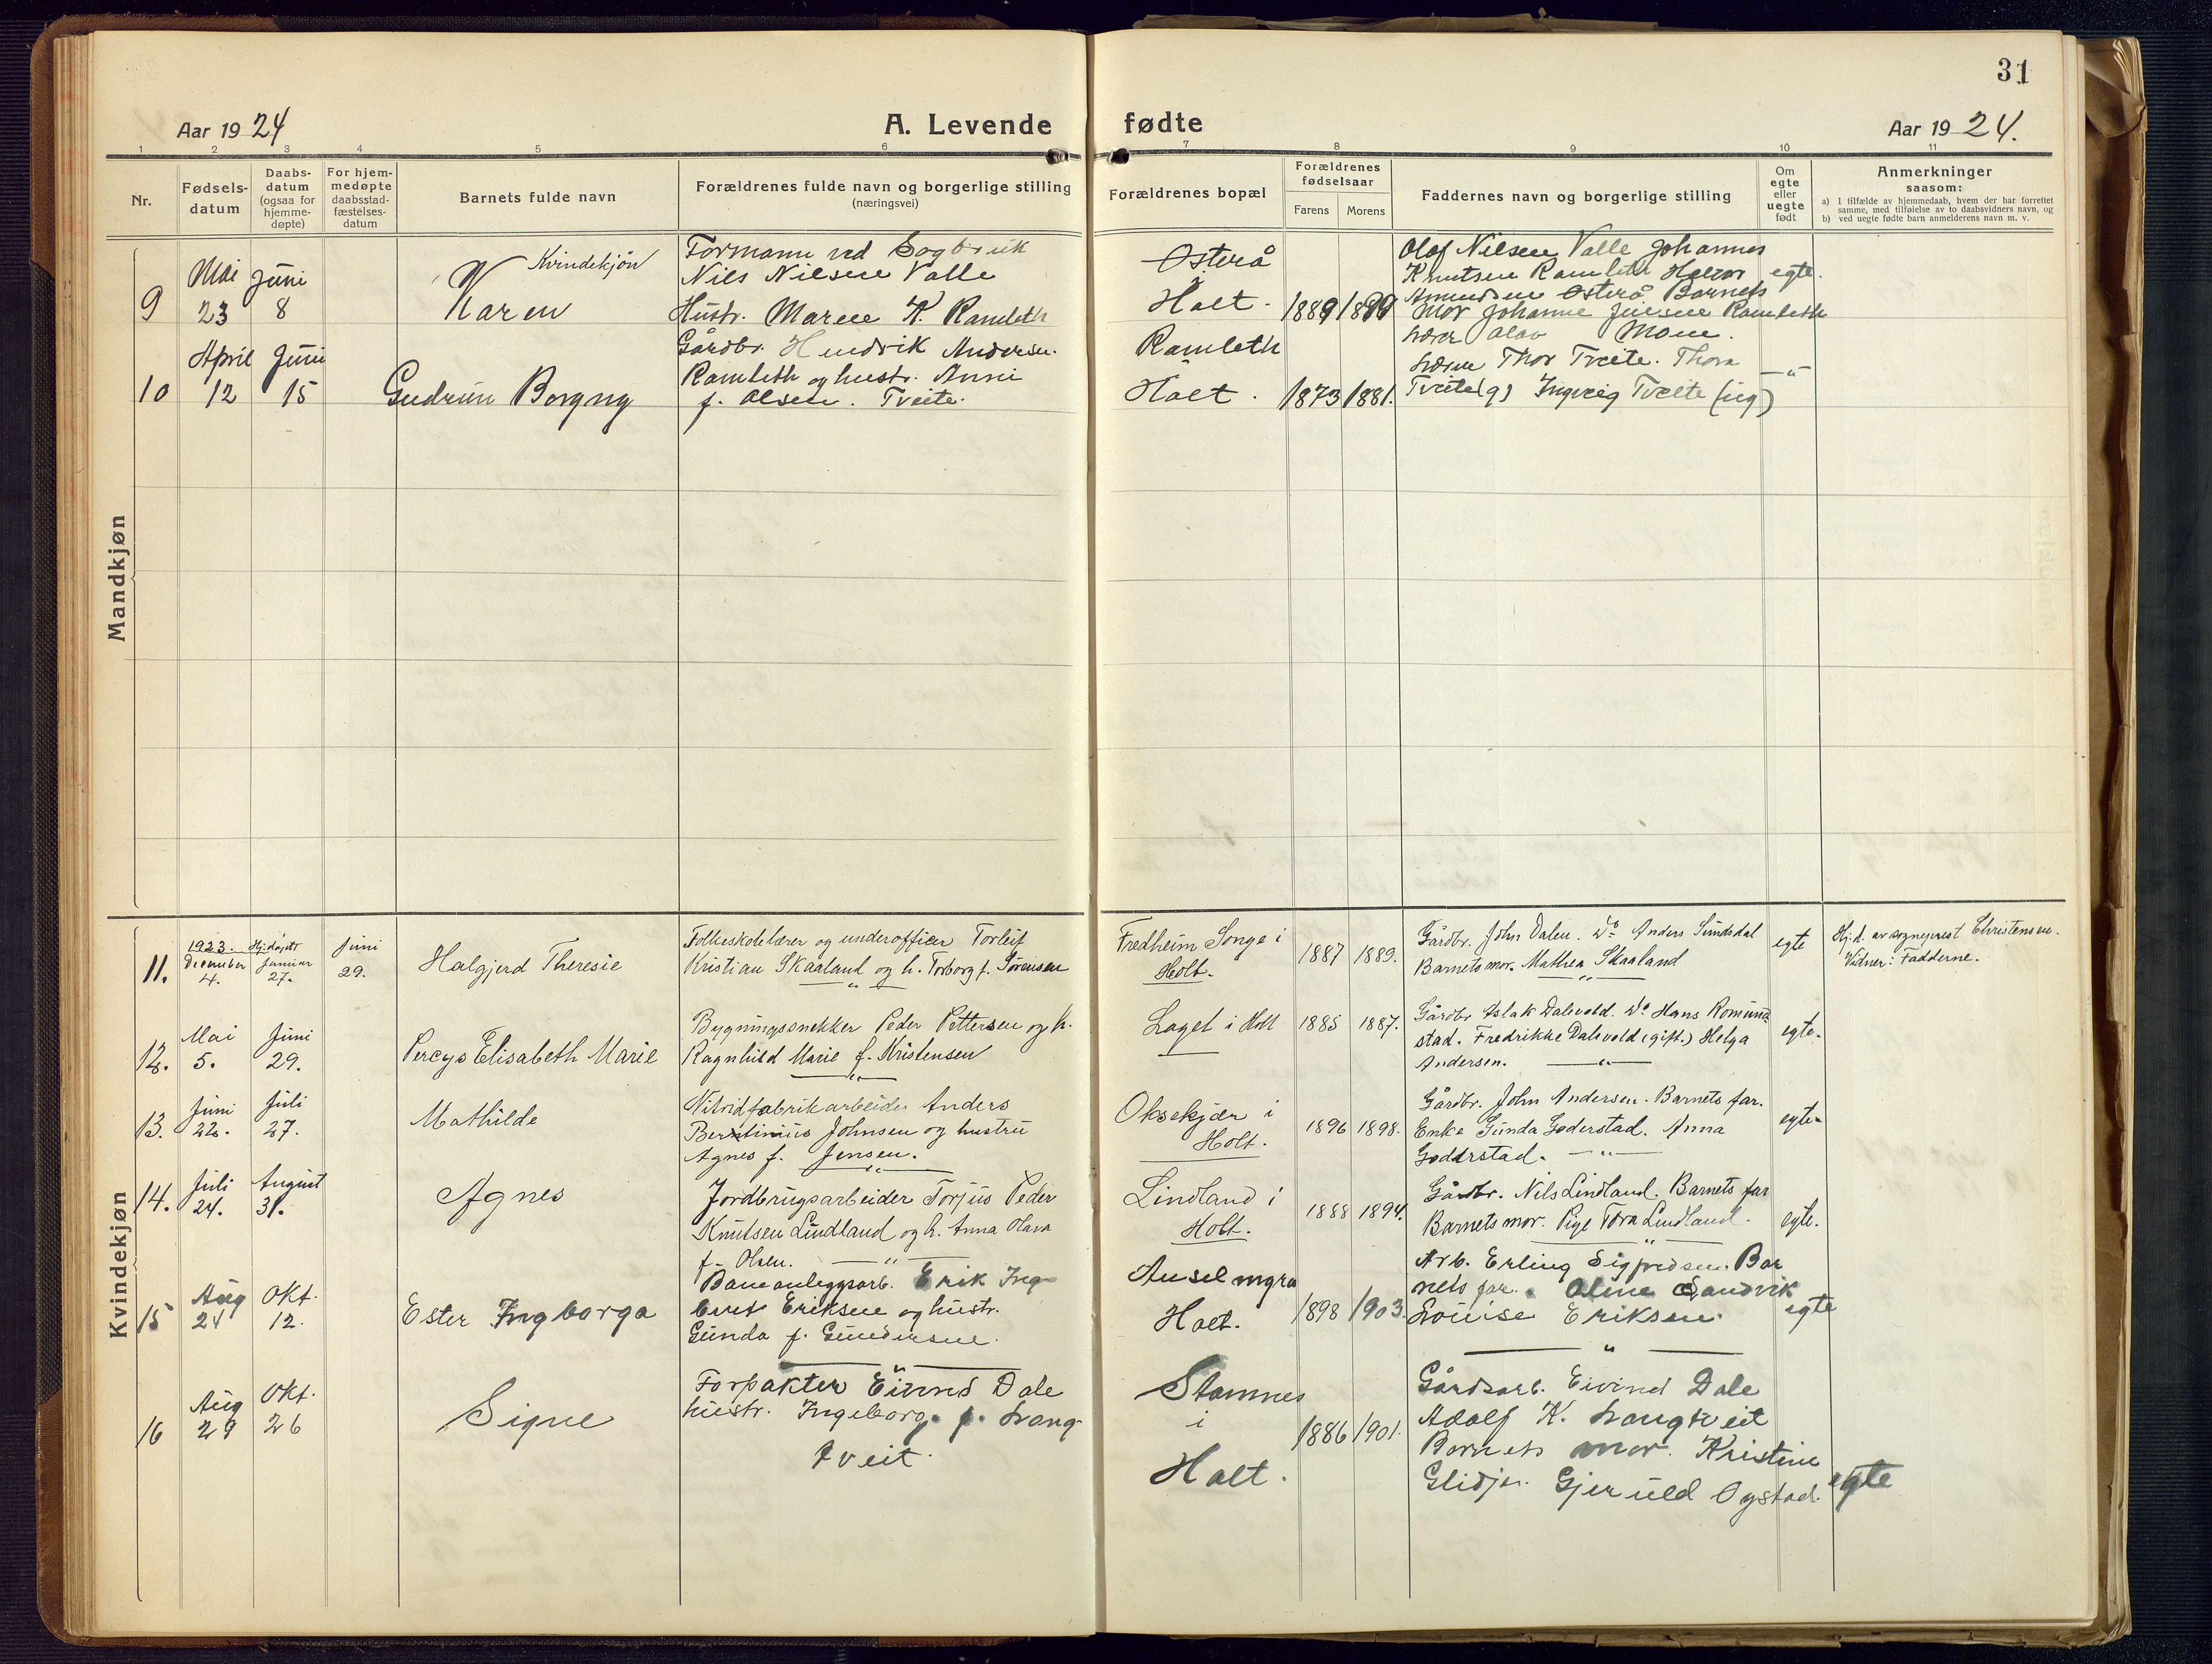 31
Aar 1924
A. Levende fødte
Aar 1924.
1 2 3 4 5 6 7 8 9 10 11
Nr.
Fødsels-
datum
Daabs-
datum
(ogsaa for
hjemme-
døpte)
For hjem-
medøpte
daabsstad-
fæstelses-
datum
Barnets fulde navn
Forældrenes fulde navn og borgerlige stilling
(næringsvei)
Forældrenes bopæl
Forældrenes
fødselsaar
Farens Morens
Faddernes navn og borgerlige stilling
Om
egte
eller
uegte
født
Anmerkninger
saasom:
a) I tilfælde av hjemmedaab, hvem der har forrettet
samme, med tilføielse av to daabsvidners navn, og
b) ved uegte fødte barn anmelderens navn m. v.
Mandkjøn
9
Mai Juni
23 8
Kvindekjøn
Karen
Formann ved
Nils Nilsen Valle
Hustr. Maren K. Ramleth
Østerå
Holt.
1889 1899
Olaf Nilsen Valle Johannes
Knutsen Ramleth Halvor
Amundsen Østerå Barnets
Mor Johanne Jensen Ramleth
egte.
10
April Juni
12 15
Gudrun Borgny
Gårdbr. Hendrik Andersen
Ramleth og hustr. Anne
f. Olsen. Tveite.
Ramleth
Holt.
1873 1881.
Olav Moen.
Thor Tveite. Thora
Tveite (g) Ingveig Tveite (ug)
— " —
Kvindekjøn
11.
1923. Hj. døpt
December Januar
4. 27.
Juni
29.
Halgjerd Theresie
Folkeskolelærer og underofficer Torleif
Kristian Skaaland og h. Torborg f. Sørensen
— " —
Fredheim Songe i
Holt.
1887 1889.
Gårdbr. John Dalen. Do Anders Sundsdal
Barnets mor. Mathea Skaaland
— " —
egte
Hj.d. av sogneprest Christensen.
Vidner: Fadderne.
12.
Mai Juni
5. 29.
Percys Elisabeth Marie
Bygningssnekker Peder Pettersen og h.
Ragnhild Marie f. Kristensen
— " —
Laget i Holt
1885 1887.
Gårdbr Aslak Dalevold. Do Hans Romund-
stad. Fredrikke Dalevold (gift.) Helga
Andersen. — " —
egte.
13.
Juni Juli
22. 27.
Mathilde
Nitridfabrikarbeider Anders
Berntinius Johnsen og hustru
Agnes f. Jensen.
— " —
Oksekjær i
Holt.
1896 1898.
Gårdbr. John Andersen. Barnets far.
Enke Gunda Goderstad. Anna
Godderstad. — " —
egte.
14.
Juli August
24. 31.
Agnes
Jordbrugsarbeider Torjus Peder
Knutsen Lindland og h. Anna Olava
f. Olsen. — " —
Lindland i
Holt.
1888 1894.
Gårdbr. Nils Lindland. Barnets far
Barnets mor. Pige Tora Lindland.
— " —
egte.
15
Aug Okt.
24 12.
Ester Ingborga
Baneanleggsarb. Erik Ing-
bret Eriksen og hustr.
Gunda f. Gundersen.
— " —
Holt.
1898 1903.
Arb. Erling Sigfredsen. Bar
nets far. Oline Sandvik
Louise Eriksen.
— " —
egte
16
Aug Okt.
29 26
Signe
Forpakter Eivind Dale
hustr. Ingeborg f. Lang-
tveit.
Stamnes
i
Holt.
1886 1901.
Gårdsarb. Eivind Dale
Adolf K. Langtveit
Barnets mor. Kristine
Gjeruld Ogstad.
egte